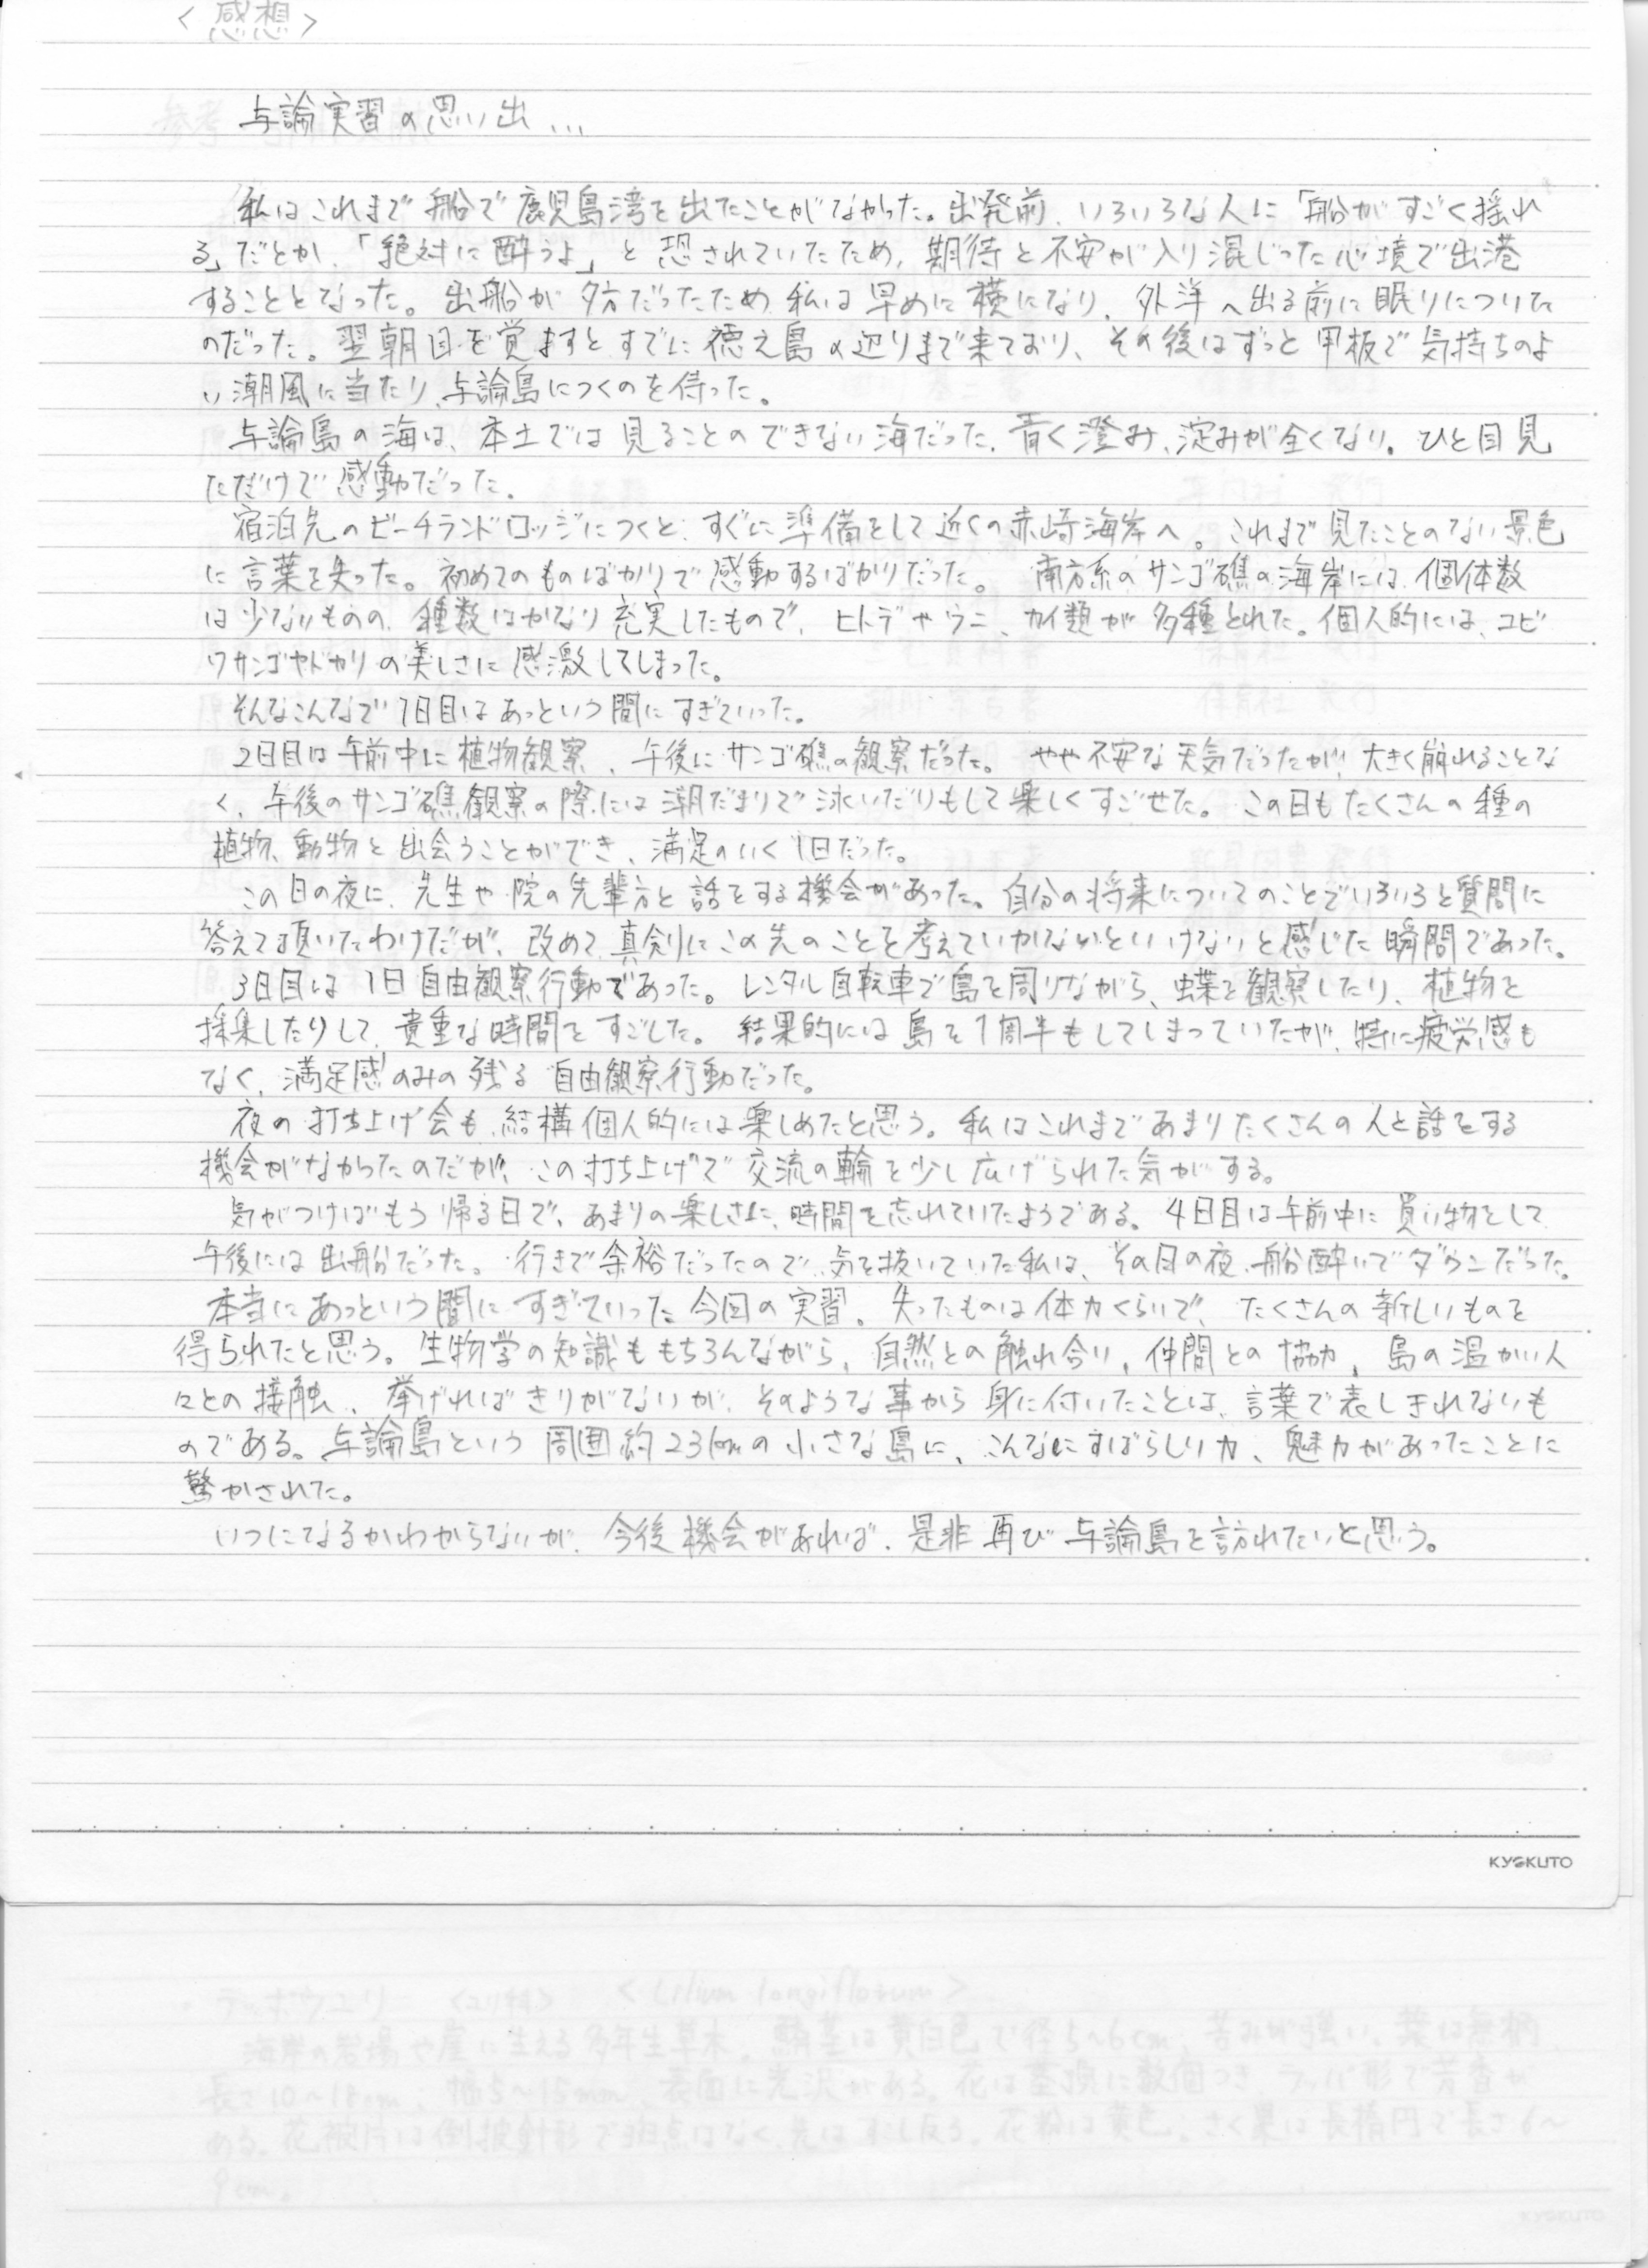 <感想>
与論実習の思い出...
私はこれまで船で鹿児島湾を出たことがなかった。出発前、いろいろな人に「船がすごく揺れ
る」だとか、「絶対に酔うよ」と恐されていたため、期待と不安が入り混じった心境で出港
することとなった。出船が夕方だったため、私は早めに横になり、外洋へ出る前に眠りについた
のだった。翌朝目を覚ますとすでに徳之島の辺りまで来ており、その後はずっと甲板で気持ちのよ
い潮風に当たり、与論島につくのを待った。
与論島の海は、本土では見ることのできない海だった。青く澄み、淀みが全くない。ひと目見
ただけで感動だった。
宿泊先のビーチランドロッジにつくと、すぐに準備をして近くの赤崎海岸へ。これまで見たことのない景色
に言葉を失った。初めてのものばかりで感動するばかりだった。南方系のサンゴ礁の海岸には、個体数
は少ないものの、種数はかなり充実したもので、ヒトデやウニ、カイ類が多種とれた。個人的には、ユビ
ワサンゴヤドカリの美しさに感激してしまった。
そんなこんなで1日目はあっという間にすぎていった。
2日目は午前中に植物観察、午後にサンゴ礁の観察だった。やや不安な天気だったが、大きく崩れることな
く、午後のサンゴ礁観察の際には潮だまりで泳いだりもして楽しくすごせた。この日もたくさんの種の
植物、動物と出会うことができ、満足のいく1日だった。
この日の夜に、先生や院の先輩方と話をする機会があった。自分の将来についてのことでいろいろと質問に
答えて頂いたわけだが、改めて真剣にこの先のことを考えていかないといけないと感じた瞬間であった。
3日目は1日自由観察行動であった。レンタル自転車で島を周りながら、蝶を観察したり、植物を
採集したりして、貴重な時間をすごした。結果的には島を1周半もしてしまっていたが、特に疲労感も
なく、満足感のみの残る自由観察行動だった。
夜の打ち上げ会も、結構個人的には楽しめたと思う。私はこれまであまりたくさんの人と話をする
機会がなかったのだが、この打ち上げで交流の輪を少し広げられた気がする。
気がつけばもう帰る日で、あまりの楽しさに、時間を忘れていたようである。4日目は午前中に買い物をして、
午後には出船だった。行きで余裕だったので、気を抜いていた私は、その日の夜、船酔いでダウンだった。
本当にあっという間にすぎていった今回の実習。失ったものは体力くらいで、たくさんの新しいものを
得られたと思う。生物学の知識ももちろんながら、自然との触れ合い、仲間との協力、島の温かい人
々との接触、挙げればきりがないが、そのような事から身に付いたことは、言葉で表しきれないも
のである。与論島という周囲約23kmの小さな島に、こんなにすばらしい力、魅力があったことに
驚かされた。
いつになるかわからないが、今後機会があれば、是非再び与論島を訪れたいと思う。
KYOKUTO
テッポウユリ <ユリ科> <Lilium longiflorum>
海岸の岩場や崖に生える多年生草本。鱗茎は黄白色で径5~6cm、苦みが強い。葉は無柄、
長さ10~18cm、幅5~15mm、表面に光沢がある。花は茎頂に数個つき、ラッパ形で芳香が
ある。花被片は倒披針形で斑点はなく、先は少し反る。花粉は黄色。さく果は長楕円で長さ6~
9cm。
KYOKUTO